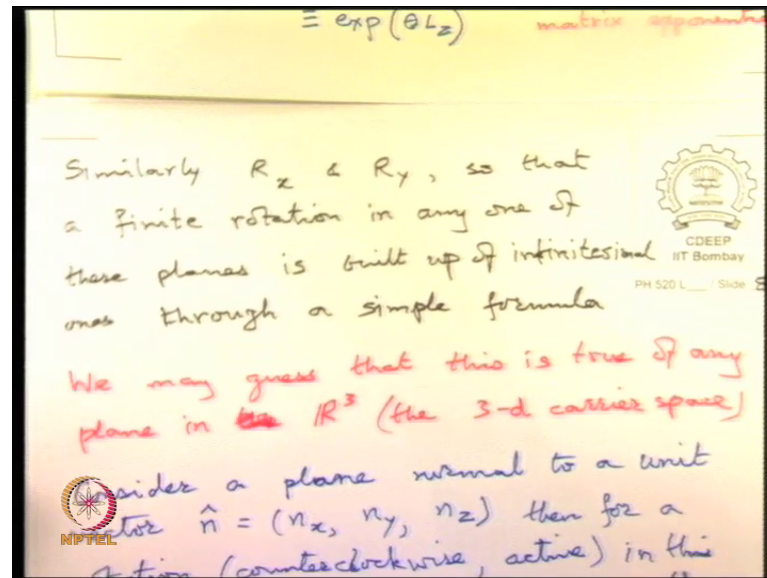 ≡ exp(θLz) matrix exponentia
Similarly Rx & Ry, so that
a finite rotation in any one of
these planes is built up of infinitesimal
ones through a simple formula
CDEEP
IIT Bombay
PH 520 L___ / Slide 8
We may guess that this is true of any
plane in R³ (the 3-d carrier space)
Consider a plane normal to a unit
vector n̂ = (nx, ny, nz) then for a
(counterclockwise, active) in this
NPTEL